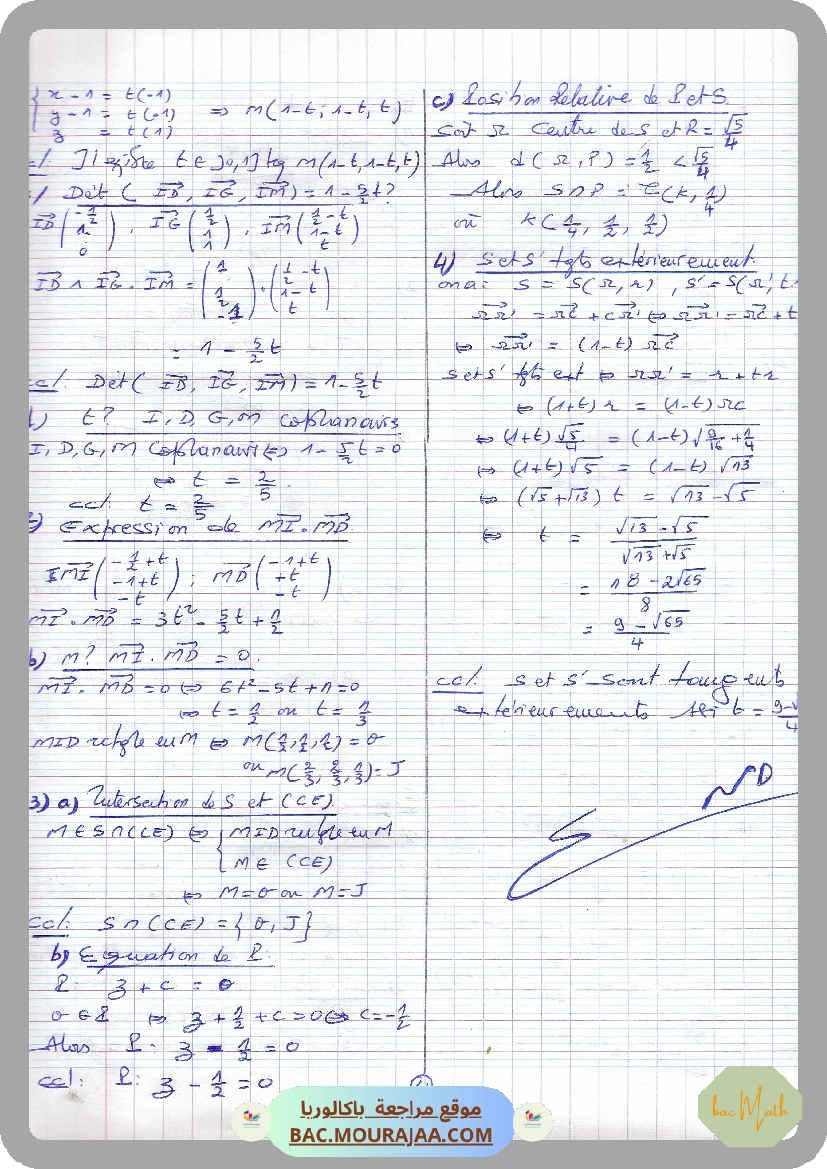 { x - 1 = t(-1)
y - 1 = t(-1) ⇒ M(1-t; 1-t, t)
z = t(1)
Il existe t ∈ ]0,1[ tq M(1-t,1-t,t)
Dét( ID, IG, IM) = 1 - 5/2 t?
ID(-1/2, 1, 0), IG(1/2, 1, 1), IM(1/2 - t, 1-t, t)
ID ∧ IG . IM = (1, 1/2, -1) . (1/2 - t, 1-t, t)
= 1 - 5/2 t
ccl: Dét( ID, IG, IM) = 1 - 5/2 t
t? I, D, G, M coplanaires
I, D, G, M coplanaires ⇔ 1 - 5/2 t = 0
⇔ t = 2/5.
ccl: t = 2/5
Expression de MI . MD
MI(-1/2 + t, -1+t, -t); MD(-1+t, +t, -t)
MI . MD = 3t² - 5/2 t + 1/2
b) M? MI . MD = 0
MI . MD = 0 ⇔ 6t² - 5t + 1 = 0
⇔ t = 1/2 ou t = 1/3
MID rectgle en M ⇔ M(1/2, 1/2, 1/2) = O
ou M(2/3, 2/3, 1/3) = J
3) a) Intersection de S et (CE)
M ∈ S ∩ (CE) ⇔ { MID rectgle en M
M ∈ (CE)
⇔ M = O ou M = J
ccl: S ∩ (CE) = { O, J }
b) Equation de P:
P: z + c = 0
O ∈ P ⇔ z + 1/2 + c = 0 ⇔ c = -1/2
Alors P: z - 1/2 = 0
ccl: P: z - 1/2 = 0
c) Position Relative de P et S.
Soit Ω centre de S et R = √5/4
Alors d(Ω, P) = 1/2 < √5/4
Alors S ∩ P = C(K, 1/4)
où K(1/4, 1/2, 1/2)
4) S et S' tgts extérieurement:
on a: S = S(Ω, r), S' = S(Ω', t
ΩΩ' = ΩC + CΩ' ⇔ ΩΩ' = ΩC + t
⇔ ΩΩ' = (1-t) ΩC
S et S' tgts ext ⇔ ΩΩ' = r + tr
⇔ (1+t) r = (1-t) ΩC
⇔ (1+t) √5/4 = (1-t) √(9/16 + 1/4)
⇔ (1+t) √5 = (1-t) √13
⇔ (√5 + √13) t = √13 - √5
⇔ t = (√13 - √5)/(√13 + √5)
= (18 - 2√65)/8
= (9 - √65)/4
ccl: S et S' sont tangents
extérieurements ssi t = 9-√/4
موقع مراجعة باكالوريا
BAC.MOURAJAA.COM
bac Math